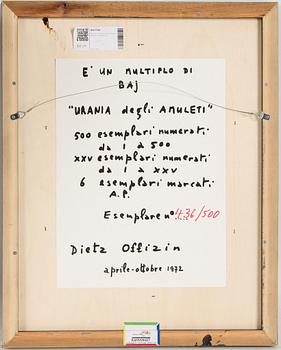 E' UN MULTIPLO DI
BAJ
"URANIA degli AMULETI"
500 esemplari numerati
da 1 a 500
XXV esemplari numerati
da 1 a XXV
6 esemplari marcati
A.P.
Esemplare n° 436/500
Dietz Offizin
aprile-ottobre 1972